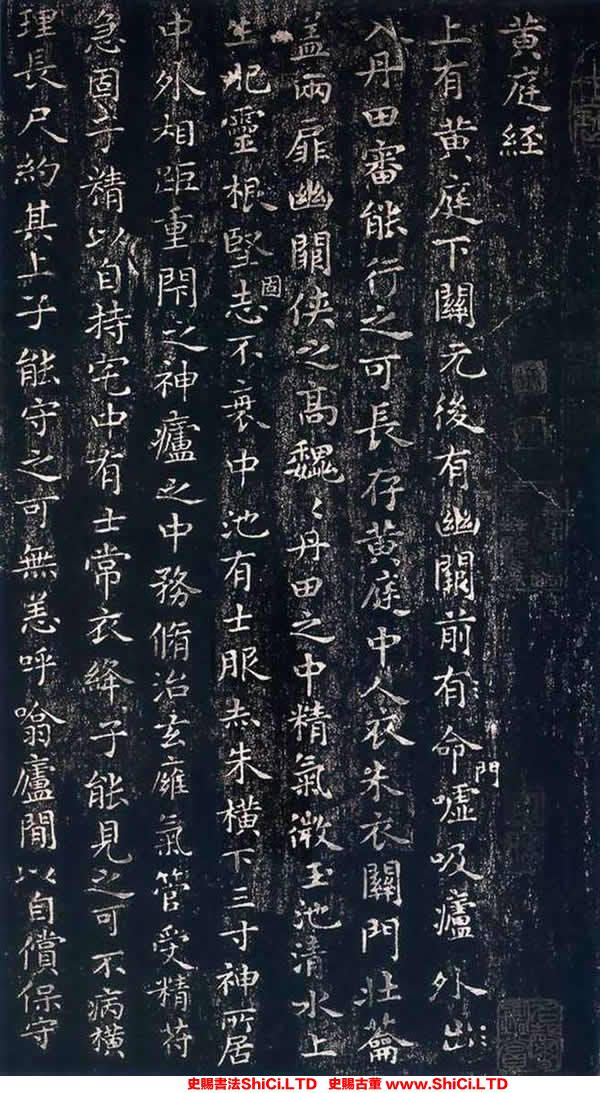 黃庭經
上有黃庭下關元後有幽闕前有命門噓吸廬外出
入丹田審能行之可長存黃庭中人衣朱衣關門壯蘥
盖兩扉幽闕俠之高魏〻丹田之中精氣微玉池清水上
生肥靈根堅固志不衰中池有士服赤朱橫下三寸神所居
中外相距重閇之神廬之中務脩治玄廱氣管受精苻
急固子精以自持宅中有士常衣絳子能見之可不病橫
理長尺約其上子能守之可無恙呼噏廬間以自償保守
史賜書法ShiCi.LTD 史賜古董 www.ShiCi.LTD